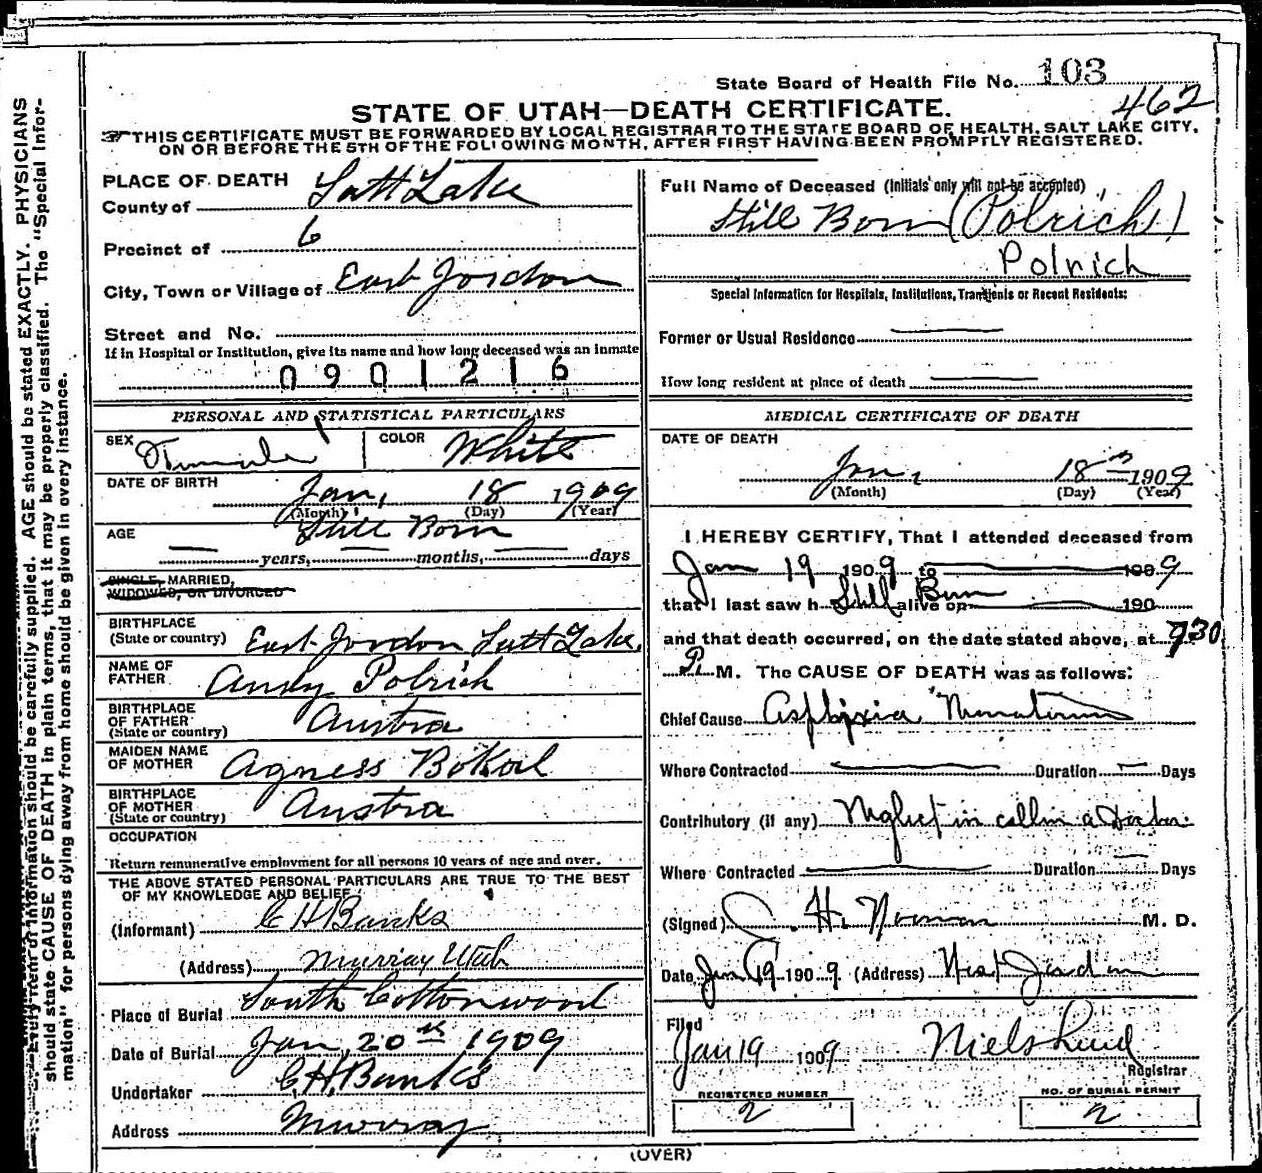 State Board of Health File No. 103
462
STATE OF UTAH—DEATH CERTIFICATE.
THIS CERTIFICATE MUST BE FORWARDED BY LOCAL REGISTRAR TO THE STATE BOARD OF HEALTH, SALT LAKE CITY,
ON OR BEFORE THE 5TH OF THE FOLLOWING MONTH, AFTER FIRST HAVING BEEN PROMPTLY REGISTERED.
PLACE OF DEATH
County of Salt Lake
Precinct of 6
City, Town or Village of East Jordon
Street and No.
If in Hospital or Institution, give its name and how long deceased was an inmate
0901216
PERSONAL AND STATISTICAL PARTICULARS
SEX Female COLOR White
DATE OF BIRTH Jan, 18 1909
(Month) (Day) (Year)
AGE Still Born
years, months, days
SINGLE, MARRIED,
WIDOWED, OR DIVORCED
BIRTHPLACE
(State or country) East Jordon Salt Lake.
NAME OF
FATHER Andy Polrich
BIRTHPLACE
OF FATHER
(State or country) Austra
MAIDEN NAME
OF MOTHER Agness Bokal
BIRTHPLACE
OF MOTHER
(State or country) Austra
OCCUPATION
Return remunerative employment for all persons 10 years of age and over.
THE ABOVE STATED PERSONAL PARTICULARS ARE TRUE TO THE BEST
OF MY KNOWLEDGE AND BELIEF
(Informant) C H Banks
(Address) Murray Utah
Place of Burial South Cottonwood
Date of Burial Jan, 20th 1909
Undertaker C.H. Banks
Address Murray
Full Name of Deceased (Initials only will not be accepted)
Still Born (Polrich)
Polnich
Special Information for Hospitals, Institutions, Transients or Recent Residents:
Former or Usual Residence
How long resident at place of death
MEDICAL CERTIFICATE OF DEATH
DATE OF DEATH
Jan, 18 1909
(Month) (Day) (Year)
I HEREBY CERTIFY, That I attended deceased from
Jan 19 1909 to 1909
that I last saw h Still Born alive on 190
and that death occurred, on the date stated above, at 930
P. M. The CAUSE OF DEATH was as follows:
Chief Cause Asphyxia Nonatorum
Where Contracted Duration Days
Contributory (if any) Neglect in callin a Doctor
Where Contracted Duration Days
(Signed) J. H. Norman M. D.
Date Jan 19 1909 (Address) West Jordan
Filed
Jan 19 1909 Niels Lind
Registrar
REGISTERED NUMBER
2
NO. OF BURIAL PERMIT
2
(OVER)
should state CAUSE OF DEATH in plain terms, that it may be properly classified. The "Special Infor-
mation" for persons dying away from home should be given in every instance.
Every item of information should be carefully supplied. AGE should be stated EXACTLY. PHYSICIANS